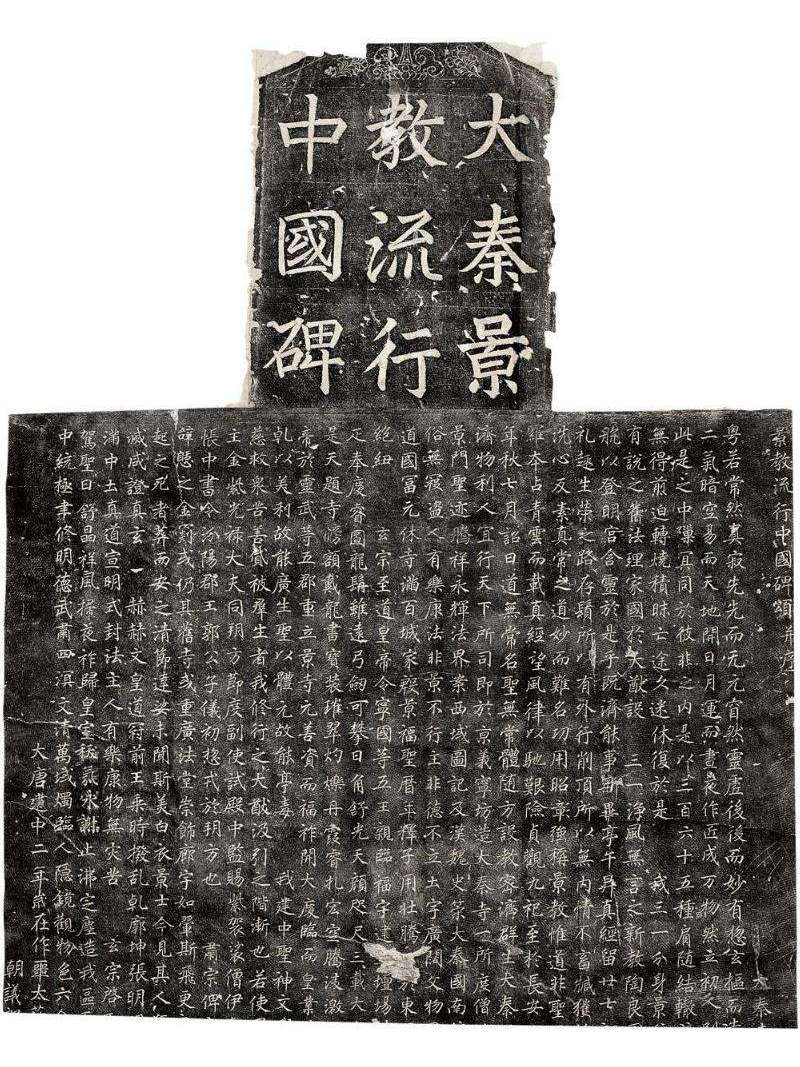 大秦景
教流行
中國碑
景教流行中國碑頌并序 大秦
粵若常然真寂先先而无元窅然靈虛後後而妙有惣玄樞而造
二氣暗空易而天地開日月運而晝夜作匠成万物然立初人別
此是之中隟冥同於彼非之内是以三百六十五種肩隨結轍
無得煎迫轉燒積昧亡途久迷休復於是 我三一分身景
有說之舊法理家國於大猷設 三一淨風無言之新教陶良
能以登明宮含靈於是乎既濟能事斯畢亭午昇真經留廿七
礼趣生榮之路存鬚所以有外行削頂所以無内情不畜臧獲
洗心反素真常之道妙而難名功用昭彰強稱景教惟道非聖
維本占青雲而載真經望風律以馳艱險貞觀九祀至於長安
年秋七月詔曰道無常名聖無常體隨方設教密濟群生大秦
濟物利人宜行天下所司即於京義寧坊造大秦寺一所度僧
景門聖迹騰祥永輝法界案西域圖記及漢魏史策大秦國南
俗無寇盜人有樂康法非景不行主非德不立土宇廣闊文物
道國富元休寺滿百城家殷景福聖曆年釋子用壯騰於東
絕紐 玄宗至道皇帝令寧國等五王親臨福宇建壇場
疋奉慶睿圖龍髯雖遠弓劒可攀日角舒光天顏咫尺三載大
是天題寺牓額戴龍書寶裝璀翠灼爍丹霞睿扎宏空騰淩激
帝於靈武等五郡重立景寺元善資而福祚開大慶臨而皇業
乹以美利故能廣生聖以體元故能亭毒 我建中聖神文
慈救衆苦善貸被群生者我修行之大猷汲引之階漸也若使
主金紫光祿大夫同朔方節度副使試殿中監賜紫袈裟僧伊
帳中書令汾陽郡王郭公子儀初惣戎於朔方也 肅宗俾
憩之金罽或仍其舊寺或重廣法堂崇飾廊宇如翬斯飛更
起之死者葬而安之清節達娑未聞斯美白衣景士今見其人
滅咸證真玄 赫赫文皇道冠前王乘時撥乱乹廓坤張明
滿中土真道宣明式封法主人有樂康物無災苦 玄宗啓
駕聖日舒晶祥風掃夜祚歸皇室祅氛永謝止沸定塵造我區
中統極聿修明德武肅四溟文清萬域燭臨人隱鏡觀物色六合
大唐建中二年歲在作噩太蔟
朝議